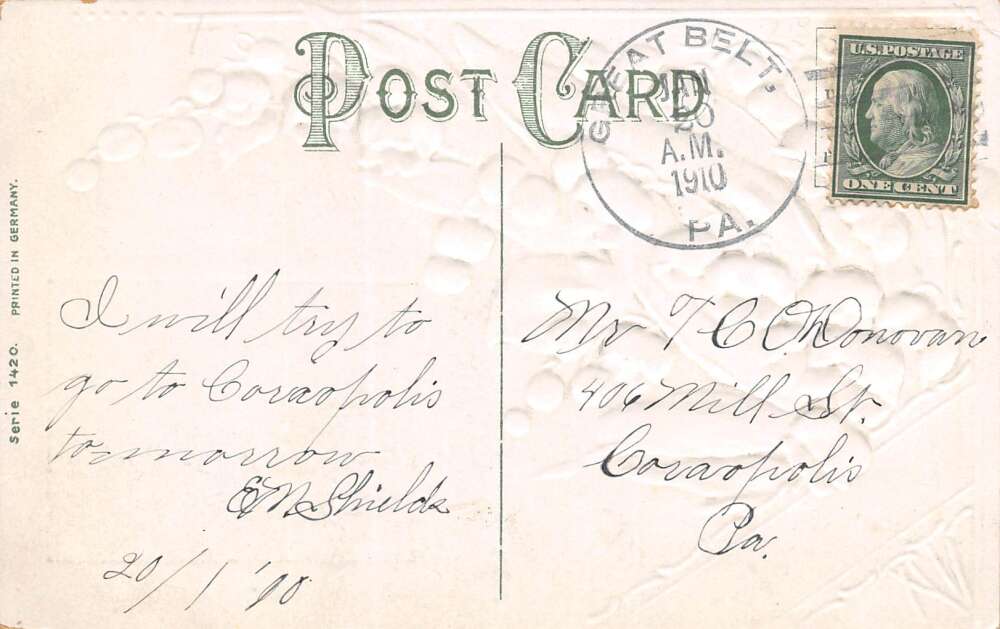 POST CARD
GREAT BELT.
JAN
20
A.M.
1910
PA.
U.S. POSTAGE
ONE CENT
Serie 1420. PRINTED IN GERMANY.
I will try to
go to Coraopolis
tomorrow
E M Shields
20/1 '10
Mr T C O'Donovan
406 Mill St.
Coraopolis
Pa.